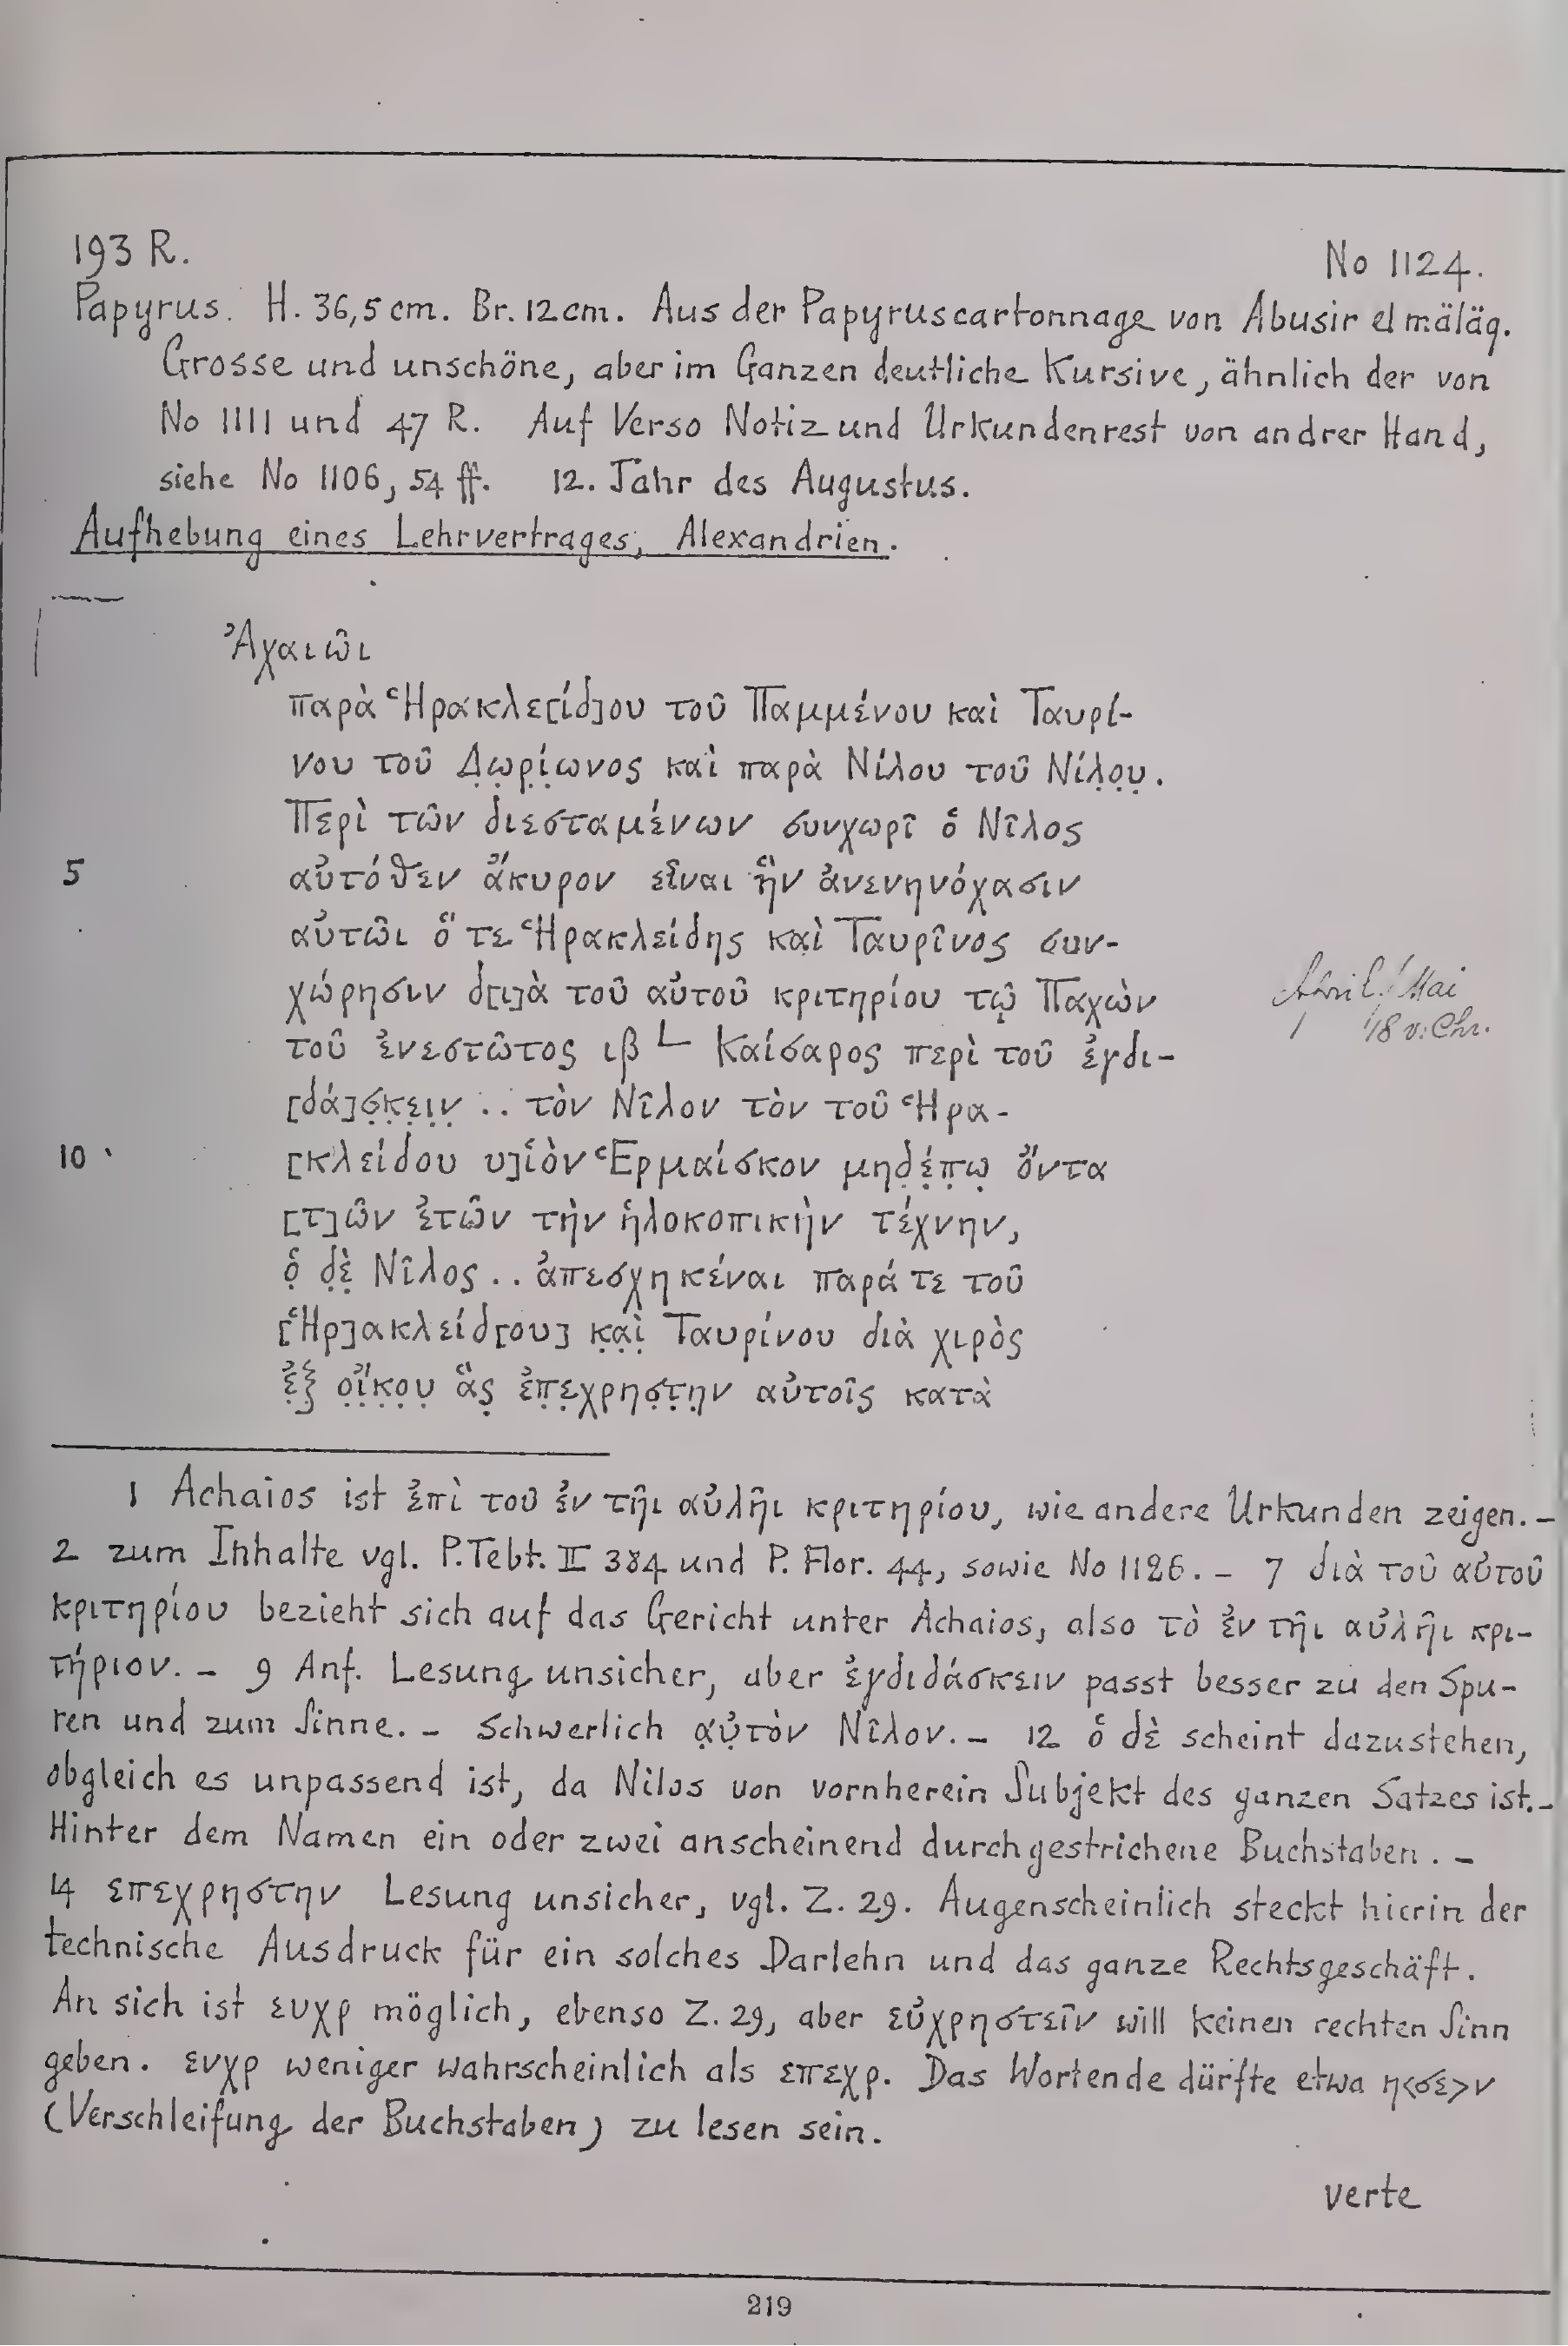 193 R.
No 1124.
Papyrus. H. 36,5 cm. Br. 12 cm. Aus der Papyruscartonnage von Abusir el mäläq.
Grosse und unschöne, aber im Ganzen deutliche Kursive, ähnlich der von
No 1111 und 47 R. Auf Verso Notiz und Urkundenrest von andrer Hand,
siehe No 1106, 54 ff. 12. Jahr des Augustus.
Aufhebung eines Lehrvertrages, Alexandrien.
Ἀχαιῶι
παρὰ Ἡρακλε[ίδ]ου τοῦ Παμμένου καὶ Ταυρί-
νου τοῦ Δ̣ω̣ρ̣ί̣ωνος καὶ παρὰ Νίλου τοῦ Νίλ̣ο̣υ̣.
Περὶ τῶν διεσταμένων συνχωρῖ ὁ Νῖλος
5 αὐτόθεν ἄκυρον εἶναι ἣν ἀνενηνόχασιν
αὐτῶι ὅ τε Ἡρακλείδης καὶ Ταυρῖνος συν-
χώρησιν δ[ι]ὰ τοῦ αὐτοῦ κριτηρίου τῷ Παχὼν
April/Mai
τοῦ ἐνεστῶτος ιβ L Καίσαρος περὶ τοῦ ἐγδι-
18 v. Chr.
[δά]σ̣κ̣ε̣ι̣ν̣ .. τὸν Νῖλον τὸν τοῦ Ἡρα-
10 [κλείδου υ]ἱὸν Ἑρμαίσκον μηδ̣έ̣π̣ω̣ ὄντα
[τ]ῶν ἐτῶν τὴν ἡλοκοπικὴν τέχνην,
ὁ̣ δ̣ὲ̣ Νῖλος .. ἀπεσχηκέναι παρά τε τοῦ
[Ἡρ]ακλείδ[ου] κ̣α̣ὶ̣ Ταυρίνου διὰ χιρὸς
ἐ̣ξ̣ ο̣ἴ̣κ̣ο̣υ̣ ἃς̣ ἐπ̣ε̣χρησ̣τ̣η̣ν αὐτοῖς κατὰ
1 Achaios ist ἐπὶ τοῦ ἐν τῆι αὐλῆι κριτηρίου, wie andere Urkunden zeigen. –
2 zum Inhalte vgl. P. Tebt. II 384 und P. Flor. 44, sowie No 1126. – 7 διὰ τοῦ αὐτοῦ
κριτηρίου bezieht sich auf das Gericht unter Achaios, also τὸ ἐν τῆι αὐλῆι κρι-
τήριον. – 9 Anf. Lesung unsicher, aber ἐγδιδάσκειν passt besser zu den Spu-
ren und zum Sinne. – Schwerlich α̣ὐ̣τὸν Νῖλον. – 12 ὁ δὲ scheint dazustehen,
obgleich es unpassend ist, da Nilos von vornherein Subjekt des ganzen Satzes ist. –
Hinter dem Namen ein oder zwei anscheinend durchgestrichene Buchstaben. –
14 επεχρηστην Lesung unsicher, vgl. Z. 29. Augenscheinlich steckt hierin der
technische Ausdruck für ein solches Darlehn und das ganze Rechtsgeschäft.
An sich ist ευχρ möglich, ebenso Z. 29, aber εὐχρηστεῖν will keinen rechten Sinn
geben. ενχρ weniger wahrscheinlich als επεχρ. Das Wortende dürfte etwa η<σε>ν
(Verschleifung der Buchstaben) zu lesen sein.
verte
219